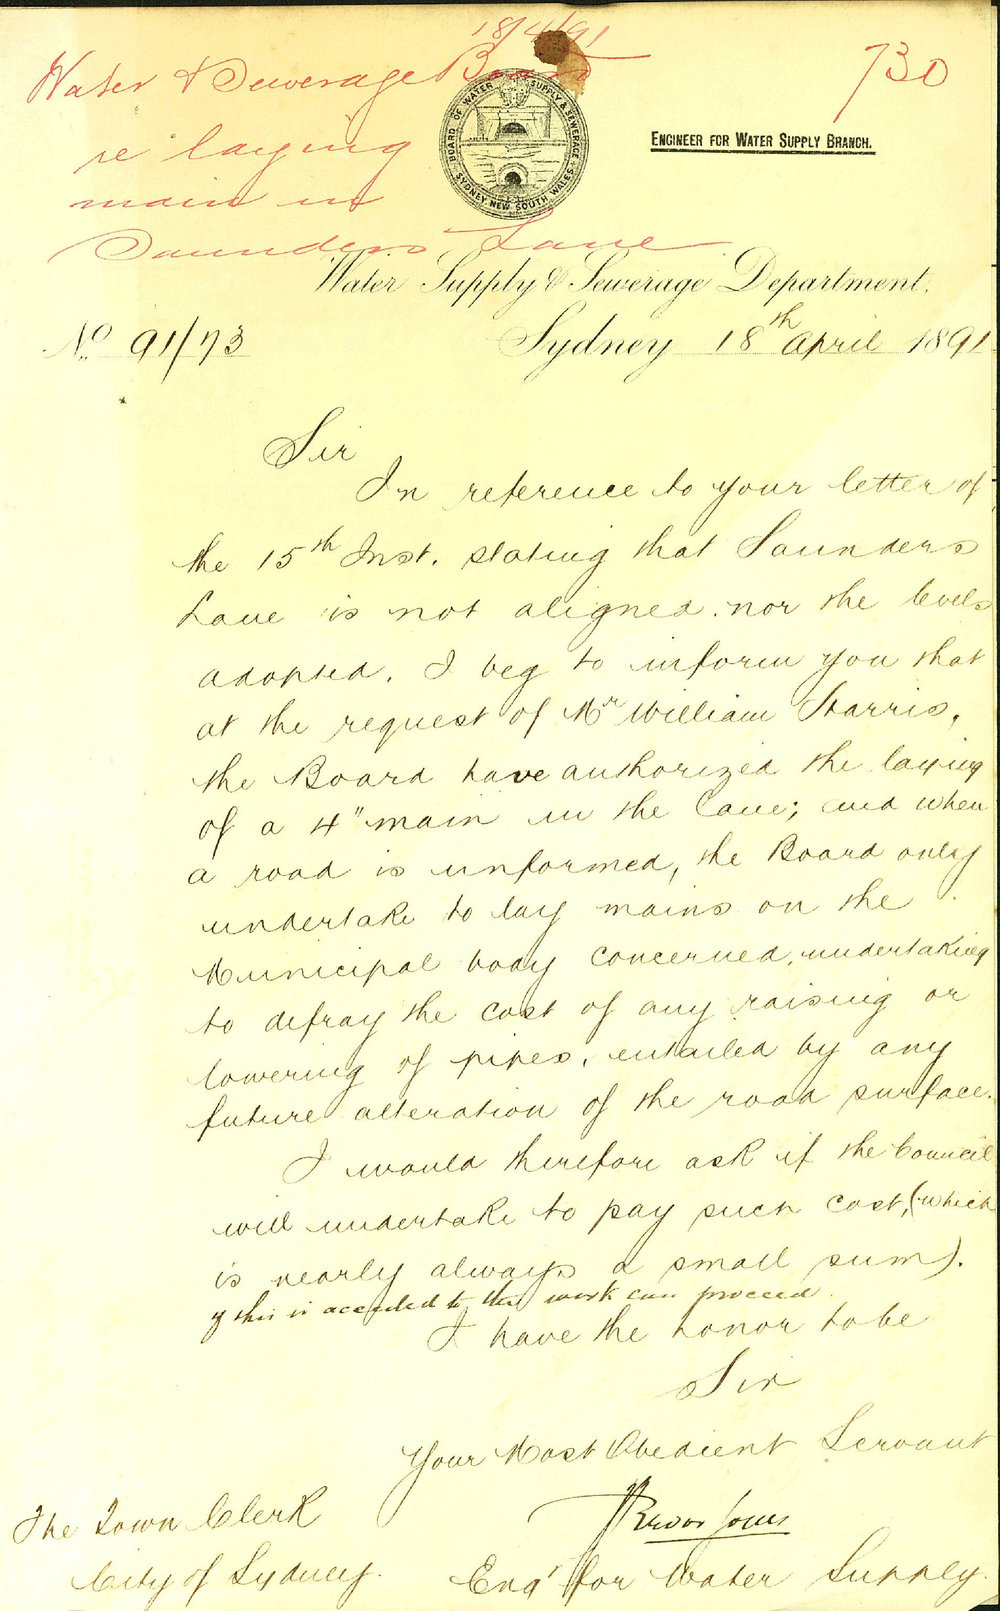 18/4/91
Water & Sewerage Board
730
re laying
main in
Saunders Lane
BOARD OF WATER SUPPLY & SEWERAGE
SYDNEY NEW SOUTH WALES
ENGINEER FOR WATER SUPPLY BRANCH.
Water Supply & Sewerage Department.
No. 91/73
Sydney 18th April 1891
Sir
In reference to your letter of
the 15th Inst. stating that Saunders
Lane is not aligned nor the levels
adopted. I beg to inform you that
at the request of Mr William Harris,
the Board have authorized the laying
of a 4" main in the Lane; and when
a road is unformed, the Board only
undertake to lay mains on the
Municipal body concerned, undertaking
to defray the cost of any raising or
lowering of pipes, entailed by any
future alteration of the road surface.
I would therefore ask if the Council
will undertake to pay such cost, (which
is nearly always a small sum).
if this is acceded to, the work can proceed.
I have the honor to be
Sir
Your Most Obedient Servant
Trevor Jones
The Town Clerk
City of Sydney.
Engr for Water Supply.